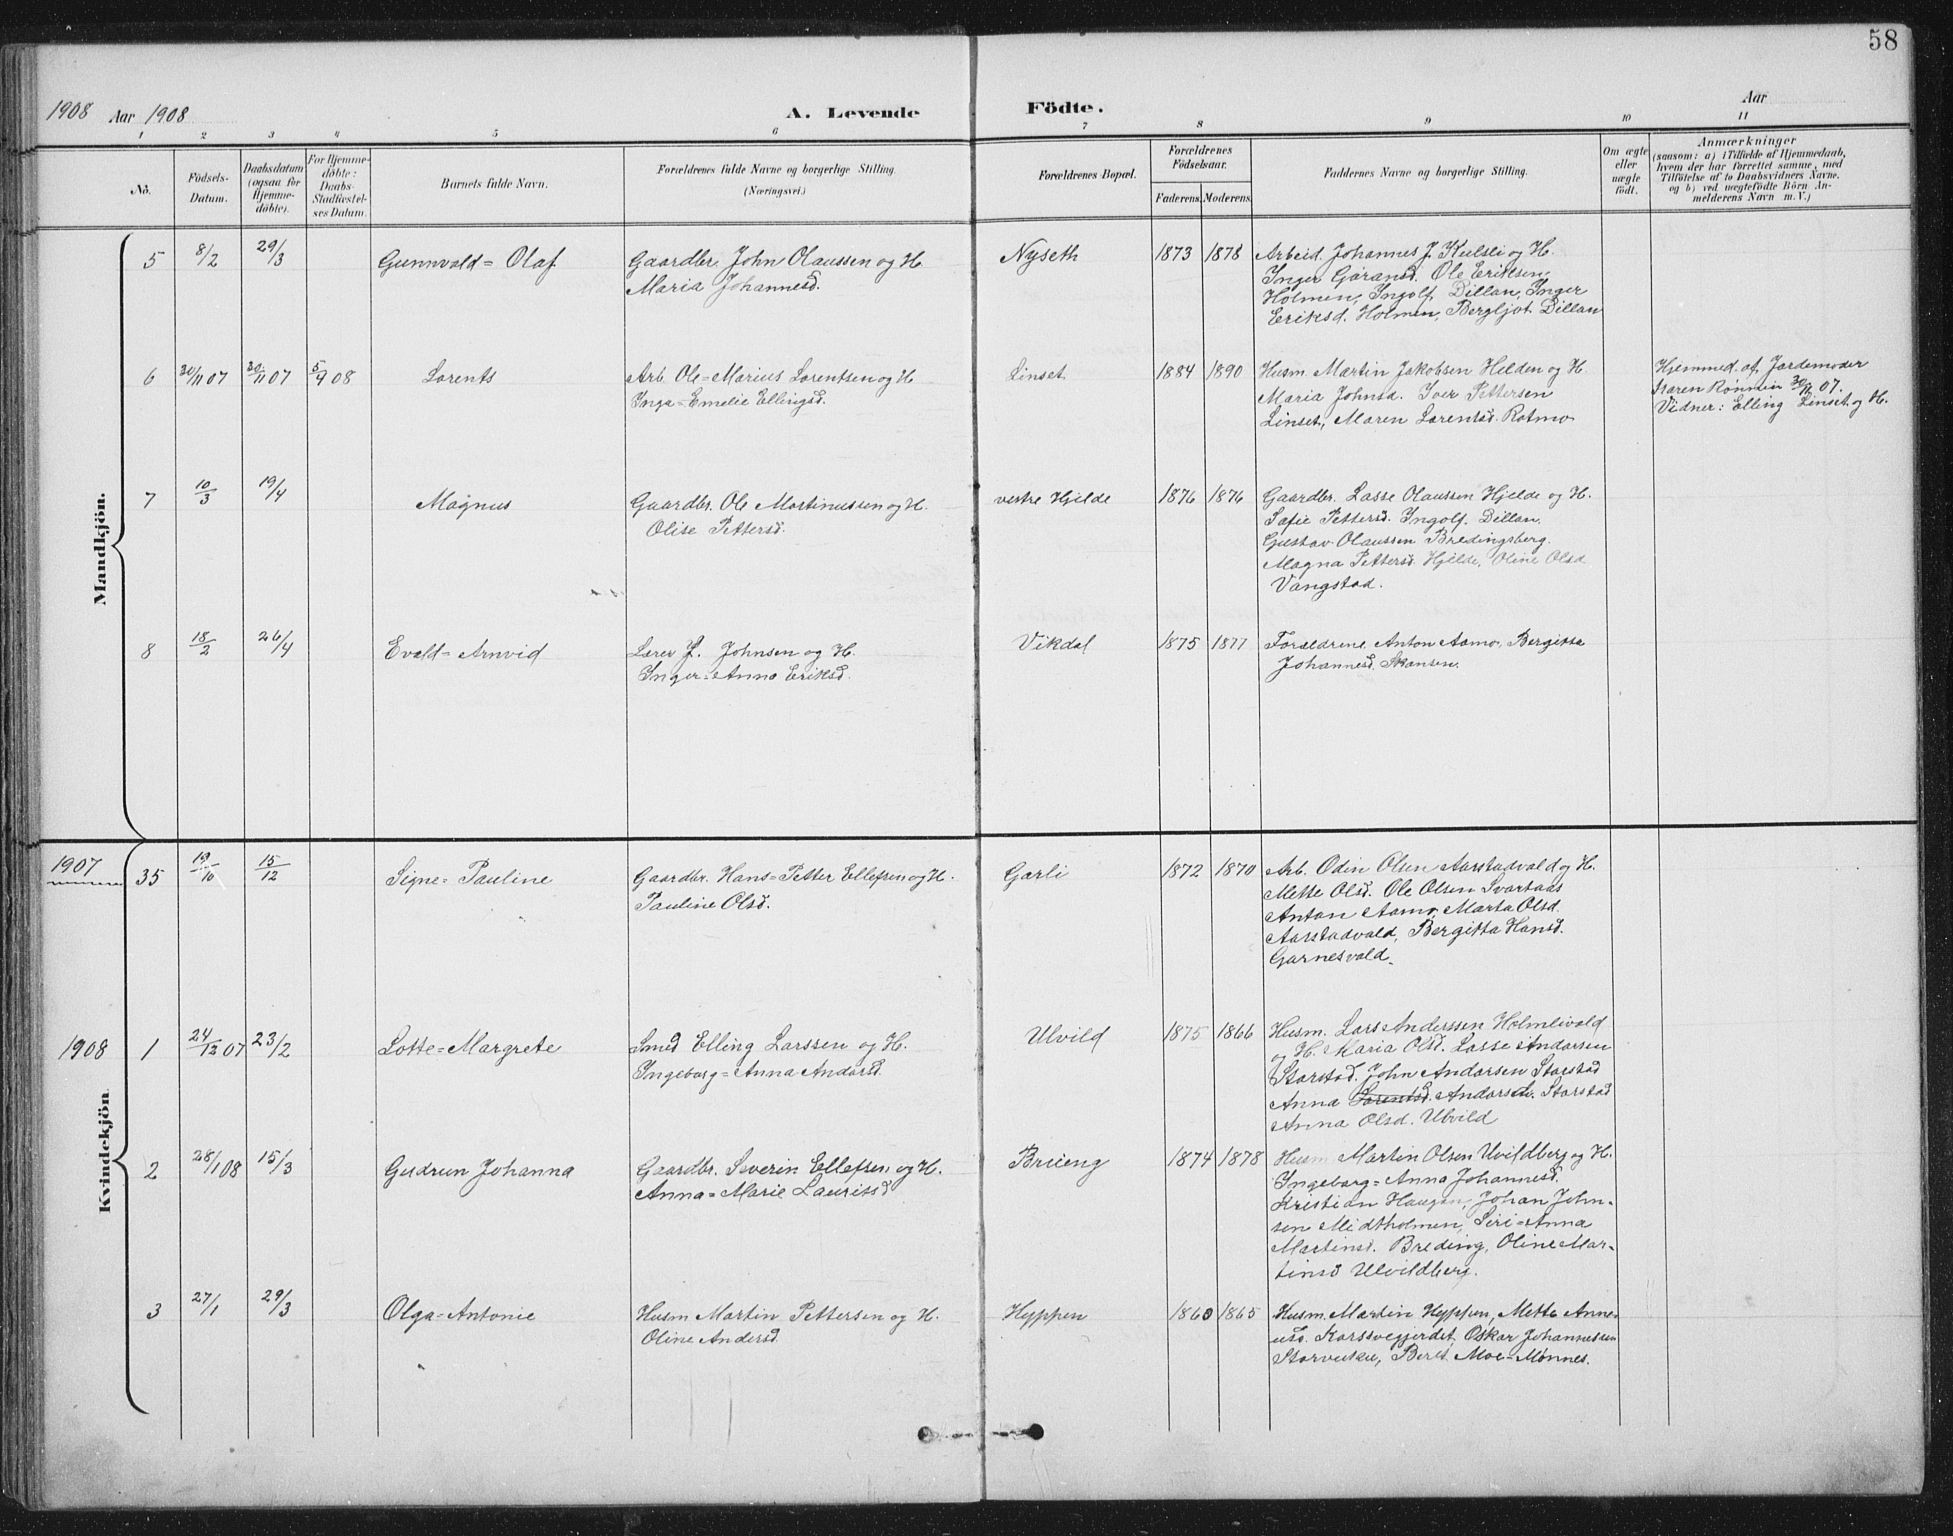 58
1908 Aar 1908 A. Levende Födte. Aar
1 2 3 4 5 6 7 8 9 10 11
No.
Födsels-
Datum.
Daabsdatum
(ogsaa for
Hjemme-
döbte).
For Hjemme-
döbte:
Daabs-
Stadfæstel-
ses Datum.
Barnets fulde Navn.
Forældrenes fulde Navne og borgerlige Stilling.
(Næringsvei.)
Forældrenes Bopæl.
Forældrenes
Födselsaar.
Faderens. Moderens.
Faddernes Navne og borgerlige Stilling.
Om ægte
eller
uægte
födt.
Anmærkninger
(saasom: a) i Tilfælde af Hjemmedaab,
hvem der har forrettet samme, med
Tilföielse af to Daabsvidners Navne.
og b) ved uægtefödte Börn An-
melderens Navn m. V.)
Mandkjön.
5 8/2 29/3 Gunnvald=Olaf Gaardbr. John Olaussen og H.
Maria Johannesd.
Nyseth 1873 1878 Arbeid. Johannes J. Kulsli og H.
Inger Göransd. Ole Eriksen
Holmen, Ingolf Dillan, Inger
Eriksd. Holmen, Bergljot Dillan
6 30/11 07 30/11 07 5/4 08 Lorents Arb. Ole=Marius Lorentsen og H.
Inga=Emelie Ellingsd.
Linset 1884 1890 Husm. Martin Jakobsen Helden og H.
Maria Johnsd. Iver Pettersen
Linset, Maren Lorentsd. Rotmo
Hjemmed. af Jordemoder
Karen Rönnin 30/11 07.
Vidner: Elling Linset og H.
7 10/3 19/4 Magnus Gaardbr. Ole Martinussen og H.
Olise Pettersd.
vestre Hjelde 1876 1876 Gaardbr. Lasse Olaussen Hjelde og H.
Sofie Pettersd. Ingolf. Dillan,
Gustav Olaussen Bredingsberg.
Magna Pettersd. Hjelde, Oline Olsd
Vangstad.
8 18/2 26/4 Evald=Arnvid Lærer P. Johnsen og H.
Inger=Anna Eriksd.
Vikdal 1875 1877 Forældrene, Anton Aamo, Bergitta
Johannesd. Skansen.
1907
35 19/10 15/12 Signe=Pauline Gaardbr. Hans=Petter Ellefsen og H.
Pauline Olsd.
Garli 1872 1870 Arb. Odin Olsen Aarstadvald og H.
Mette Olsd. Ole Olsen Svartaas
Anton Aamo, Marta Olsd.
Aarstadvald, Bergitta Hansd.
Garnesvald.
Kvindekjön.
1908 1 24/12 07 23/2 Lotte=Margrete Smed Elling Larssen og H.
Ingeborg=Anna Andersd.
Ulvild 1875 1866 Husm. Lars Anderssen Holmlivald
og H. Maria Olsd. Lasse Andersen
Storstad. John Andersen Storstad
Anna Lorentsd. Andersen. Storstad
Anna Olsd. Ulvild
2 28/1 08 15/3 Gudrun Johanna Gaardbr. Severin Ellefsen og H.
Anna=Marie Lauritsd
Brueng 1874 1878 Husm. Martin Olsen Uvildberg og H.
Ingeborg=Anna Johannesd.
Kristian Haugan, Johan John-
sen Midtholmen, Siri=Anna
Martinsd. Breding, Oline Mar-
tinsd Ulvildberg.
3 27/1 29/3 Olga=Antonie Husm Martin Pettersen og H.
Oline Andersd.
Hyppen 1860 1865 Husm. Martin Hyppen, Mette Anne-
usd. Karsvegjerdet, Oskar Johannessen
Storvuku, Beret Moe=Mönnes.